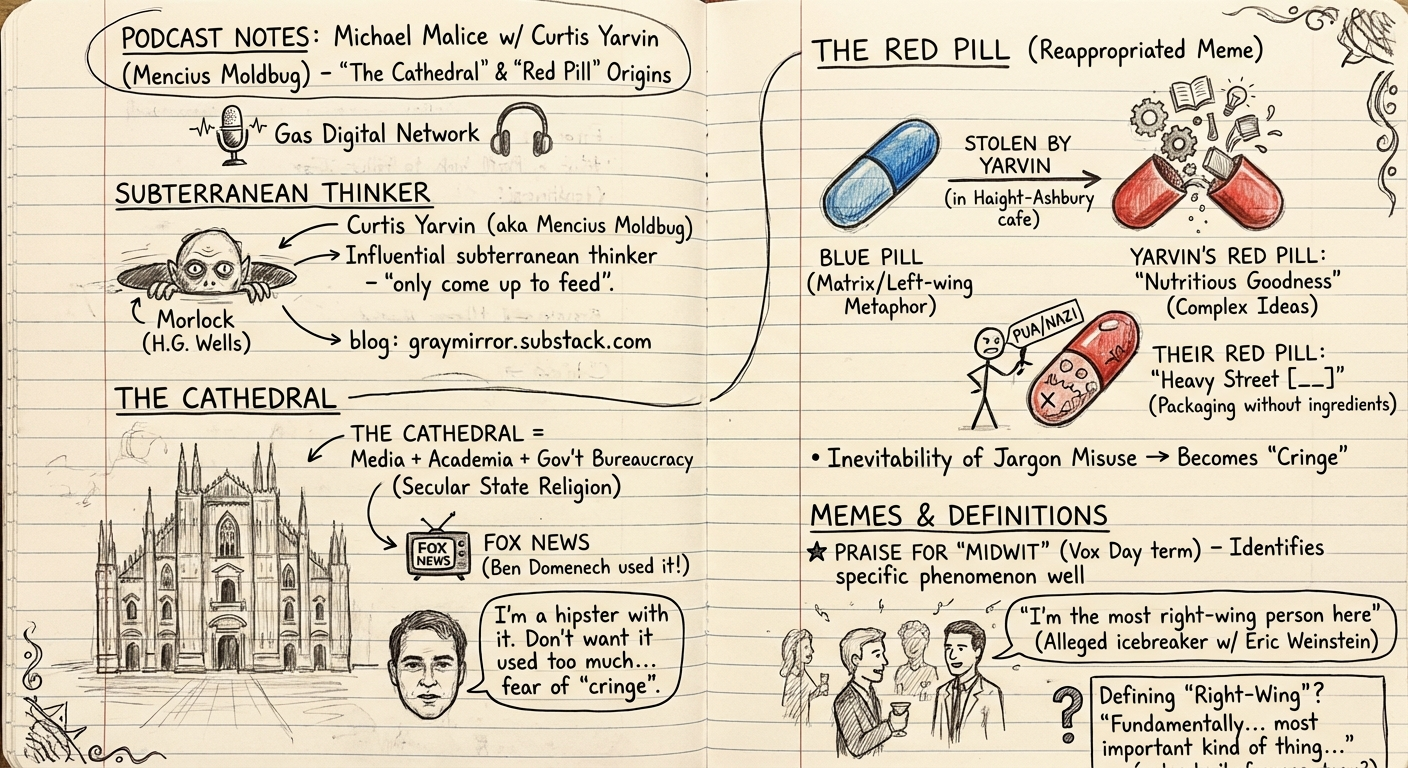 PODCAST NOTES: Michael Malice w/ Curtis Yarvin
(Mencius Moldbug) – “The Cathedral” & “Red Pill” Origins
Gas Digital Network
SUBTERRANEAN THINKER
Curtis Yarvin (aka Mencius Moldbug)
Influential subterranean thinker
– “only come up to feed”.
Morlock
(H.G. Wells)
blog: graymirror.substack.com
THE CATHEDRAL
THE CATHEDRAL =
Media + Academia + Gov't Bureaucracy
(Secular State Religion)
FOX
NEWS
FOX NEWS
(Ben Domenech used it!)
I'm a hipster with
it. Don't want it
used too much...
fear of “cringe”.
THE RED PILL (Reappropriated Meme)
STOLEN BY
YARVIN
(in Haight-Ashbury
cafe)
BLUE PILL
(Matrix/Left-wing
Metaphor)
YARVIN'S RED PILL:
“Nutritious Goodness”
(Complex Ideas)
PUA/NAZI
THEIR RED PILL:
“Heavy Street [__]”
(Packaging without ingredients)
• Inevitability of Jargon Misuse → Becomes “Cringe”
MEMES & DEFINITIONS
★ PRAISE FOR “MIDWIT” (Vox Day term) – Identifies
specific phenomenon well
“I'm the most right-wing person here”
(Alleged icebreaker w/ Eric Weinstein)
?
Defining “Right-Wing”?
“Fundamentally... most
important kind of thing...”